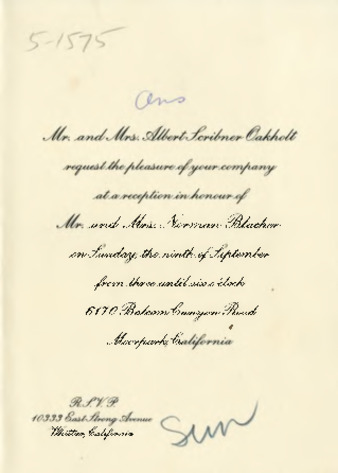 5-1575
ans
Mr. and Mrs. Albert Scribner Oakholt
request the pleasure of your company
at a reception in honour of
Mr. and Mrs. Norman Blacher
on Sunday, the ninth of September
from three until six o'clock
6170 Balcom Canyon Road
Moorpark, California
R.S.V.P.
10333 East Strong Avenue
Whittier, California
Sun